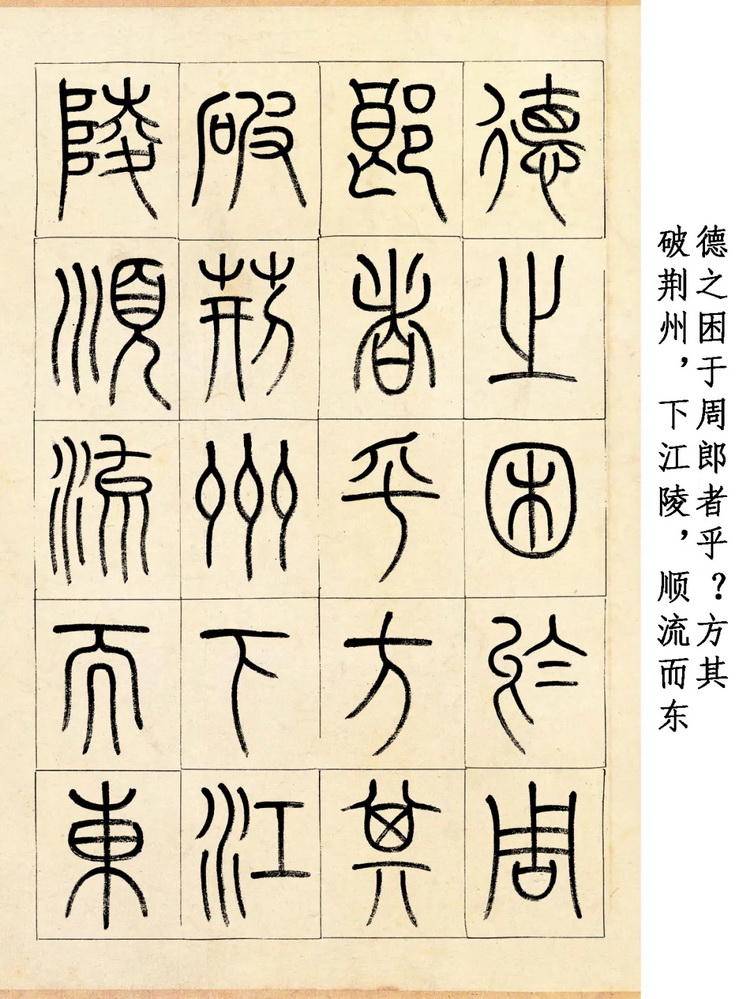 德之困於周
郎者乎方其
破荊州下江
陵順流而東
德之困于周郎者乎？方其
破荆州，下江陵，顺流而东